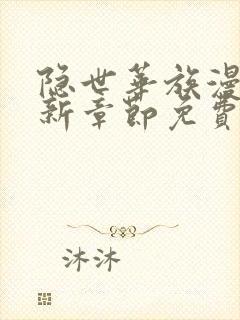 隐世华族漫
新章節免費
沐沐